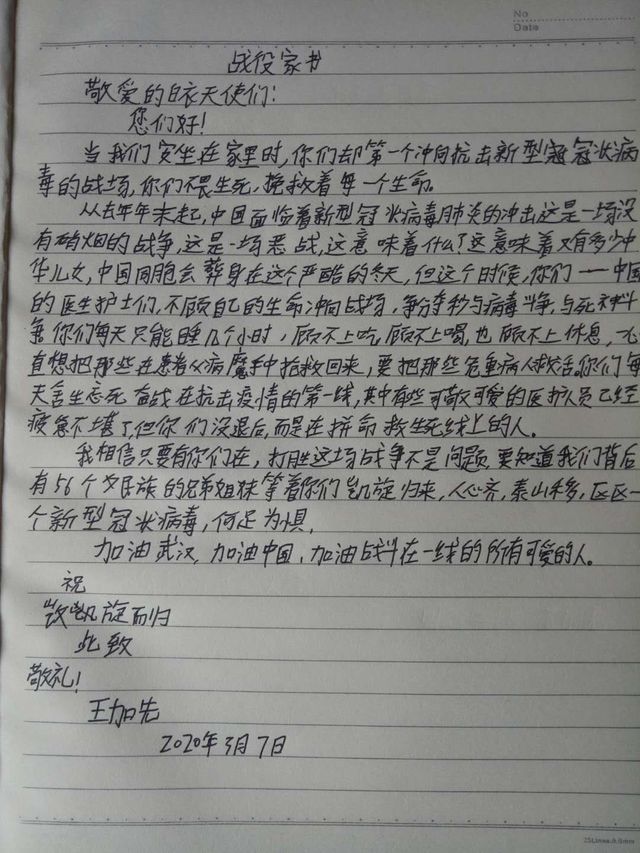 No
Date
战役家书
敬爱的白衣天使们:
您们好!
当我们安坐在家里时,你们却第一个冲向抗击新型冠冠状病
毒的战场,你们不畏生死,挽救着每一个生命。
从去年年末起,中国面临着新型冠状病毒肺炎的冲击这是一场没
有硝烟的战争,这是一场恶战,这意味着什么?这意味着又有多少中
华儿女,中国同胞会葬身在这个严酷的冬天,但这个时候,你们——中国
的医生护士们,不顾自己的生命冲向战场,争分夺秒与病毒斗争,与死神斗
争你们每天只能睡几个小时,顾不上吃,顾不上喝,也顾不上休息,一心
直想把那些在患者从病魔手中抢救回来,要把那些危重病人救活。你们每
天舍生忘死奋战在抗击疫情的第一线,其中有些可敬可爱的医护人员已经
疲惫不堪了但你们没退后,而是在拼命救生死线上的人。
我相信只要有你们在,打胜这场战争不是问题要知道我们背后
有56个民族的兄弟姐妹等着你们凯旋归来,人心齐,泰山移,区区一
个新型冠状病毒,何足为惧,
加油武汉,加油中国,加油战斗在一线的所有可爱的人。
祝
凯旋而归
此致
敬礼!
王加先
2020年3月7日